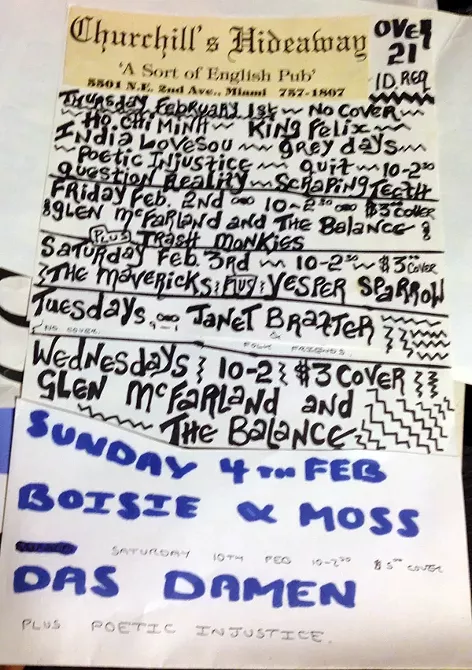 Churchill's Hideaway
'A Sort of English Pub'
5501 N.E. 2nd Ave., Miami 757-1807
OVER
21
ID REQ
THURSDAY FEBRUARY 1st ~ NO COVER
HO CHI MINH ~ KING FELIX
INDIA LOVESOU ~ GREY DAYS
POETIC INJUSTICE ~ QUIT ~ 10-2³⁰
QUESTION REALITY ~ SCRAPING TEETH
FRIDAY FEB. 2ND 10-2³⁰ $3⁰⁰ COVER
GLEN McFARLAND AND THE BALANCE
PLUS TRASH MONKIES
SATURDAY FEB. 3RD ~ 10-2³⁰ ~ $3⁰⁰ COVER
THE MAVERICKS PLUS VESPER SPARROW
TUESDAYS JANET BRATTER
NO COVER & FOLK FRIENDS.
WEDNESDAYS 10-2 $3 COVER
GLEN McFARLAND AND
THE BALANCE
SUNDAY 4TH FEB
BOISIE & MOSS
SATURDAY 10TH FEB 10-2³⁰ $5⁰⁰ COVER
DAS DAMEN
PLUS POETIC INJUSTICE.